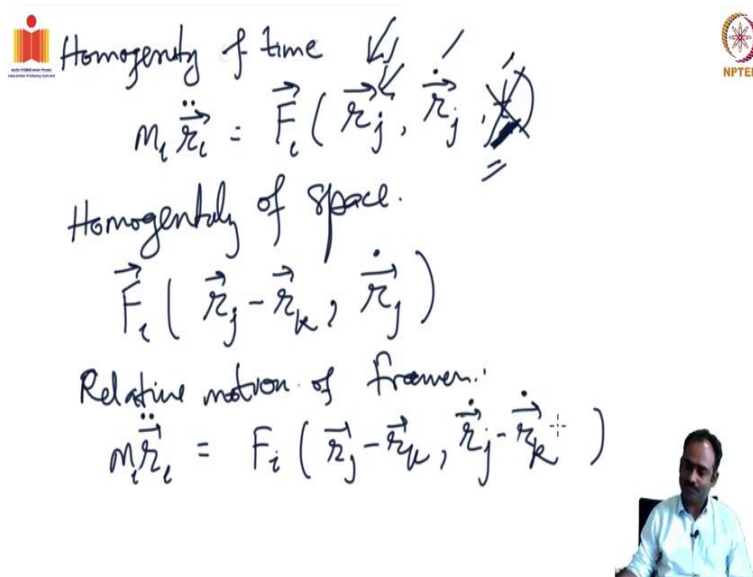 Homogenity of time
NPTEL
m_i \ddot{\vec{r}}_i = \vec{F}_i ( \vec{r}_j , \dot{\vec{r}}_j , t )
Homogenity of space.
\vec{F}_i ( \vec{r}_j - \vec{r}_k , \dot{\vec{r}}_j )
Relative motion of frames.
m_i \ddot{\vec{r}}_i = F_i ( \vec{r}_j - \vec{r}_k , \dot{\vec{r}}_j - \dot{\vec{r}}_k )